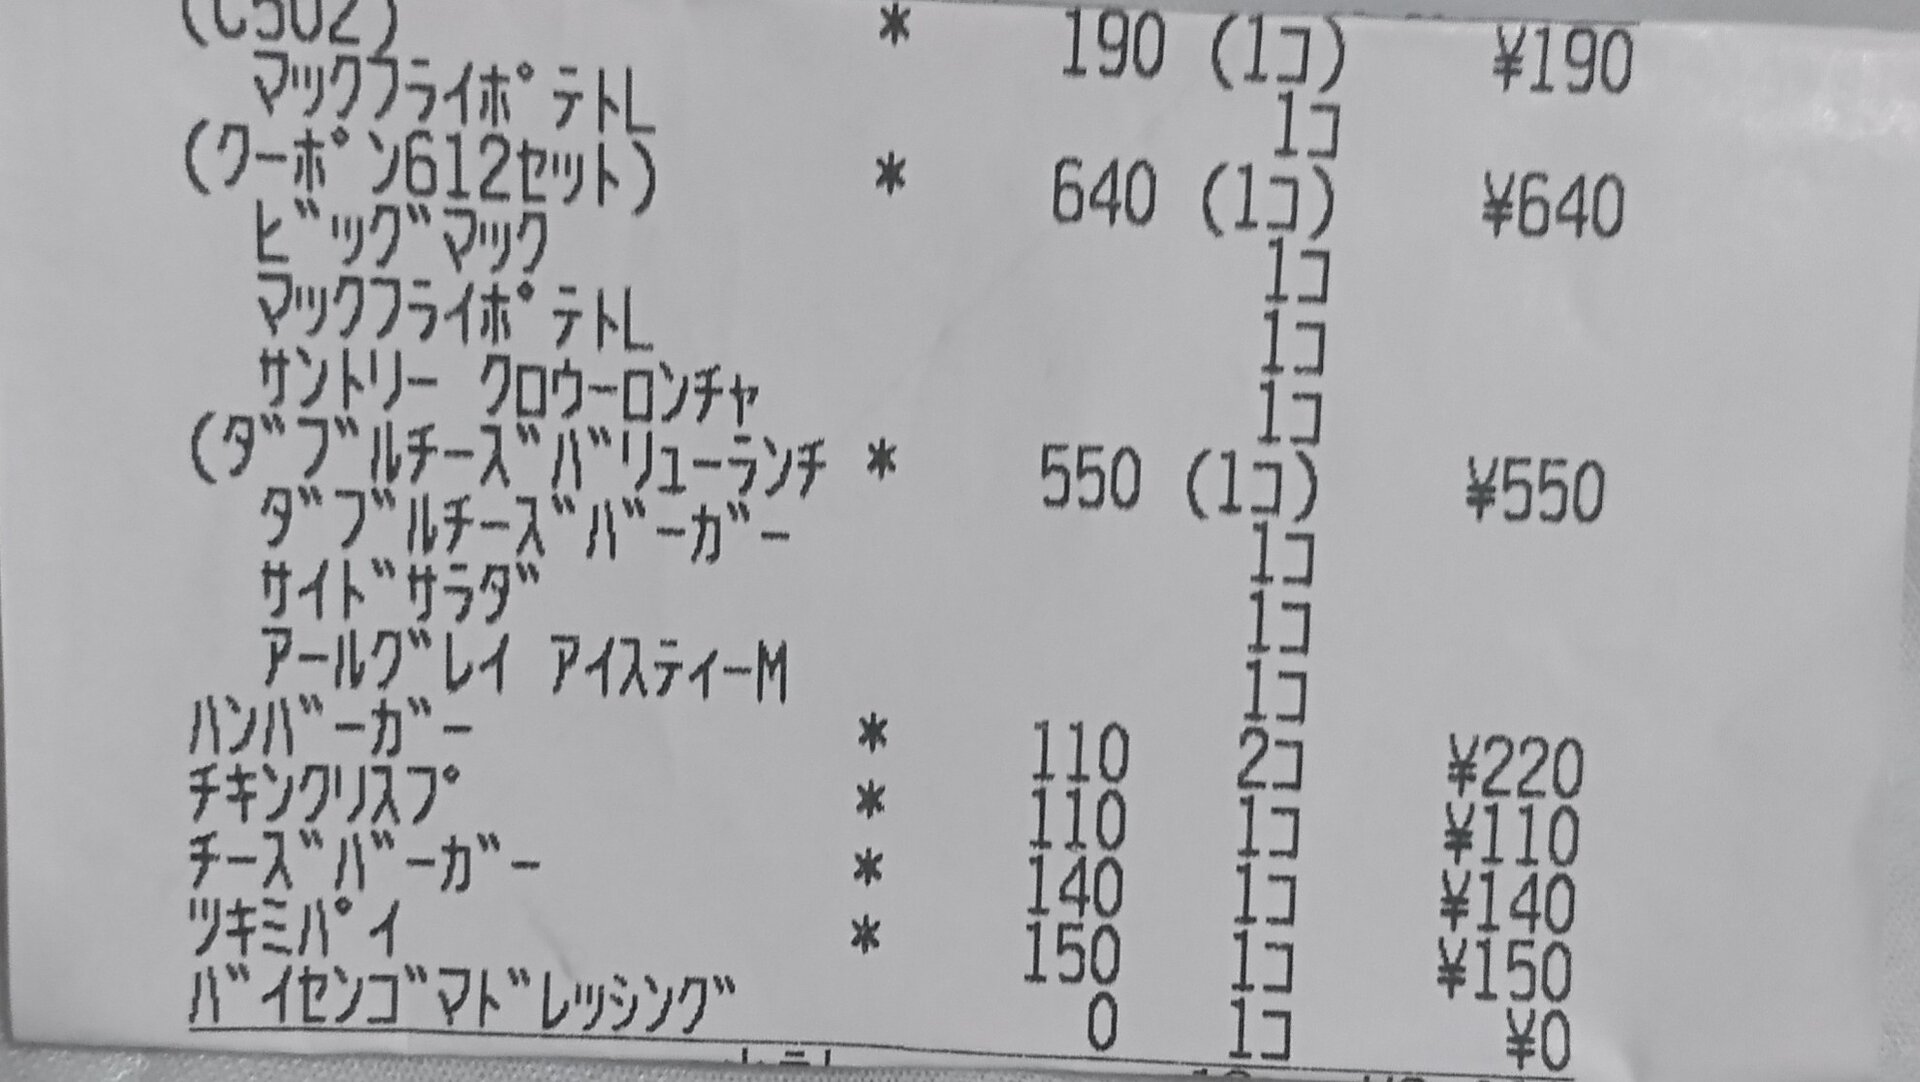 (C502) * 190 (1コ) ¥190
マックフライポテトL 1コ
(クーポン612セット) * 640 (1コ) ¥640
ビッグマック 1コ
マックフライポテトL 1コ
サントリー クロウーロンチャ 1コ
(ダブルチーズバリューランチ * 550 (1コ) ¥550
ダブルチーズバーガー 1コ
サイドサラダ 1コ
アールグレイ アイスティーM 1コ
ハンバーガー * 110 2コ ¥220
チキンクリスプ * 110 1コ ¥110
チーズバーガー * 140 1コ ¥140
ツキミパイ * 150 1コ ¥150
バイセンゴマドレッシング 0 1コ ¥0